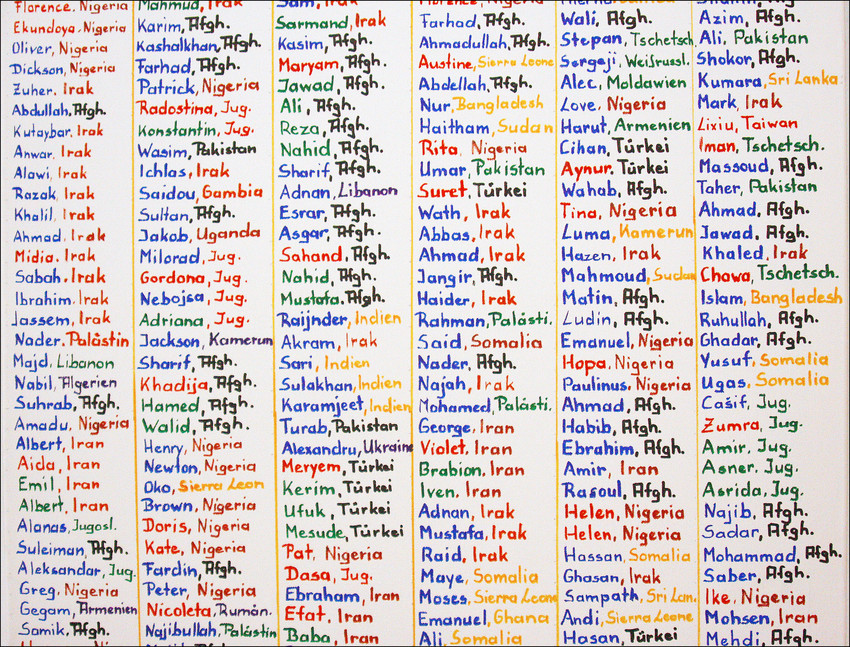 Florence, Nigeria
Ekundoya, Nigeria
Oliver, Nigeria
Dickson, Nigeria
Zuher, Irak
Abdullah, Afgh.
Kutaybar, Irak
Anwar, Irak
Alawi, Irak
Razak, Irak
Khalil, Irak
Ahmad, Irak
Midia, Irak
Sabah, Irak
Ibrahim, Irak
Jassem, Irak
Nader, Palästin
Majd, Libanon
Nabil, Algerien
Suhrab, Afgh.
Amadu, Nigeria
Albert, Iran
Aida, Iran
Emil, Iran
Albert, Iran
Alanas, Jugosl.
Suleiman, Afgh.
Aleksandar, Jug.
Greg, Nigeria
Gegam, Armenien
Samik, Afgh.
Mahmud, Irak
Karim, Afgh.
Kashalkhan, Afgh.
Farhad, Afgh.
Patrick, Nigeria
Radostina, Jug.
Konstantin, Jug.
Wasim, Pakistan
Ichlas, Irak
Saidou, Gambia
Sultan, Afgh.
Jakob, Uganda
Milorad, Jug.
Gordona, Jug.
Nebojsa, Jug.
Adriana, Jug.
Jackson, Kamerun
Sharif, Afgh.
Khadija, Afgh.
Hamed, Afgh.
Walid, Afgh.
Henry, Nigeria
Newton, Nigeria
Oko, Sierra Leon
Brown, Nigeria
Doris, Nigeria
Kate, Nigeria
Fardin, Afgh.
Peter, Nigeria
Nicoleta, Rumän.
Najibullah, Palästin
Sam, Irak
Sarmand, Irak
Kasim, Afgh.
Maryam, Afgh.
Jawad, Afgh.
Ali, Afgh.
Reza, Afgh.
Nahid, Afgh.
Sharif, Afgh.
Adnan, Libanon
Esrar, Afgh.
Asgar, Afgh.
Sahand, Afgh.
Nahid, Afgh.
Mustafa, Afgh.
Raijnder, Indien
Akram, Irak
Sari, Indien
Sulakhan, Indien
Karamjeet, Indien
Turab, Pakistan
Alexandru, Ukraine
Meryem, Türkei
Kerim, Türkei
Ufuk, Türkei
Mesude, Türkei
Pat, Nigeria
Dasa, Jug.
Ebraham, Iran
Efat, Iran
Baba, Iran
Florence, Nigeria
Farhad, Afgh.
Ahmadullah, Afgh.
Austine, Sierra Leone
Abdellah, Afgh.
Nur, Bangladesh
Haitham, Sudan
Rita, Nigeria
Umar, Pakistan
Suret, Türkei
Wath, Irak
Abbas, Irak
Ahmad, Irak
Jangir, Afgh.
Haider, Irak
Rahman, Palästi.
Said, Somalia
Nader, Afgh.
Najah, Irak
Mohamed, Palästi.
George, Iran
Violet, Iran
Brabion, Iran
Iven, Iran
Adnan, Irak
Mustafa, Irak
Raid, Irak
Maye, Somalia
Moses, Sierra Leone
Emanuel, Ghana
Ali, Somalia
Wali, Afgh.
Stepan, Tschetsch.
Sergeji, Weißrussl.
Alec, Moldawien
Love, Nigeria
Harut, Armenien
Cihan, Türkei
Aynur, Türkei
Wahab, Afgh.
Tina, Nigeria
Luma, Kamerun
Hazen, Irak
Mahmoud, Sudan
Matin, Afgh.
Ludin, Afgh.
Emanuel, Nigeria
Hopa, Nigeria
Paulinus, Nigeria
Ahmad, Afgh.
Habib, Afgh.
Ebrahim, Afgh.
Amir, Iran
Rasoul, Afgh.
Helen, Nigeria
Helen, Nigeria
Hassan, Somalia
Ghasan, Irak
Sampath, Sri Lan.
Andi, Sierra Leone
Hasan, Türkei
Azim, Afgh.
Ali, Pakistan
Shokor, Afgh.
Kumara, Sri Lanka
Mark, Irak
Lixiu, Taiwan
Iman, Tschetsch.
Massoud, Afgh.
Taher, Pakistan
Ahmad, Afgh.
Jawad, Afgh.
Khaled, Irak
Chawa, Tschetsch.
Islam, Bangladesh
Ruhullah, Afgh.
Ghadar, Afgh.
Yusuf, Somalia
Ugas, Somalia
Cašif, Jug.
Zumra, Jug.
Amir, Jug.
Asner, Jug.
Asrida, Jug.
Najib, Afgh.
Sadar, Afgh.
Mohammad, Afgh.
Saber, Afgh.
Ike, Nigeria
Mohsen, Iran
Mehdi, Afgh.